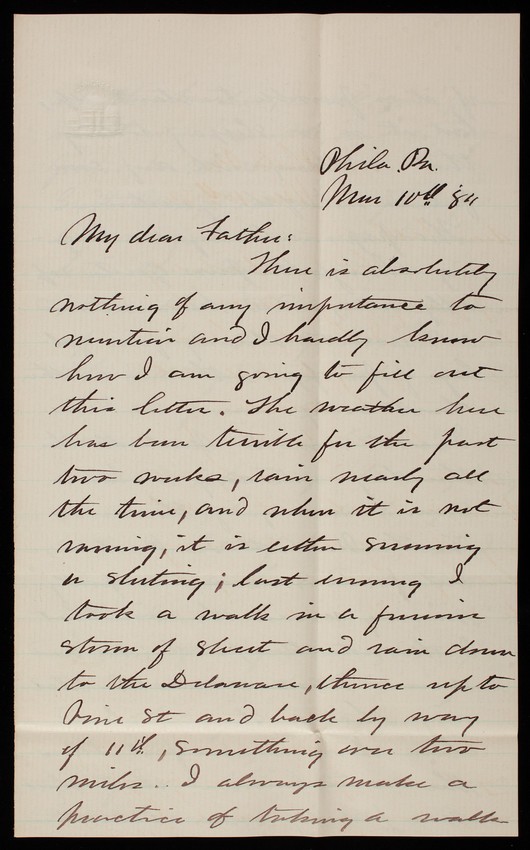 Phila. Pa.
Mar 10th '84
My dear Father:
There is absolutely
nothing of any importance to
mention and I hardly know
how I am going to fill out
this letter. The weather here
has been terrible for the past
two weeks, rain nearly all
the time, and when it is not
raining, it is either snowing
or sleeting; last evening I
took a walk in a furious
storm of sleet and rain down
to the Delaware, thence up to
Vine St and back by way
of 11th, something over two
miles. I always make a
practice of taking a walk